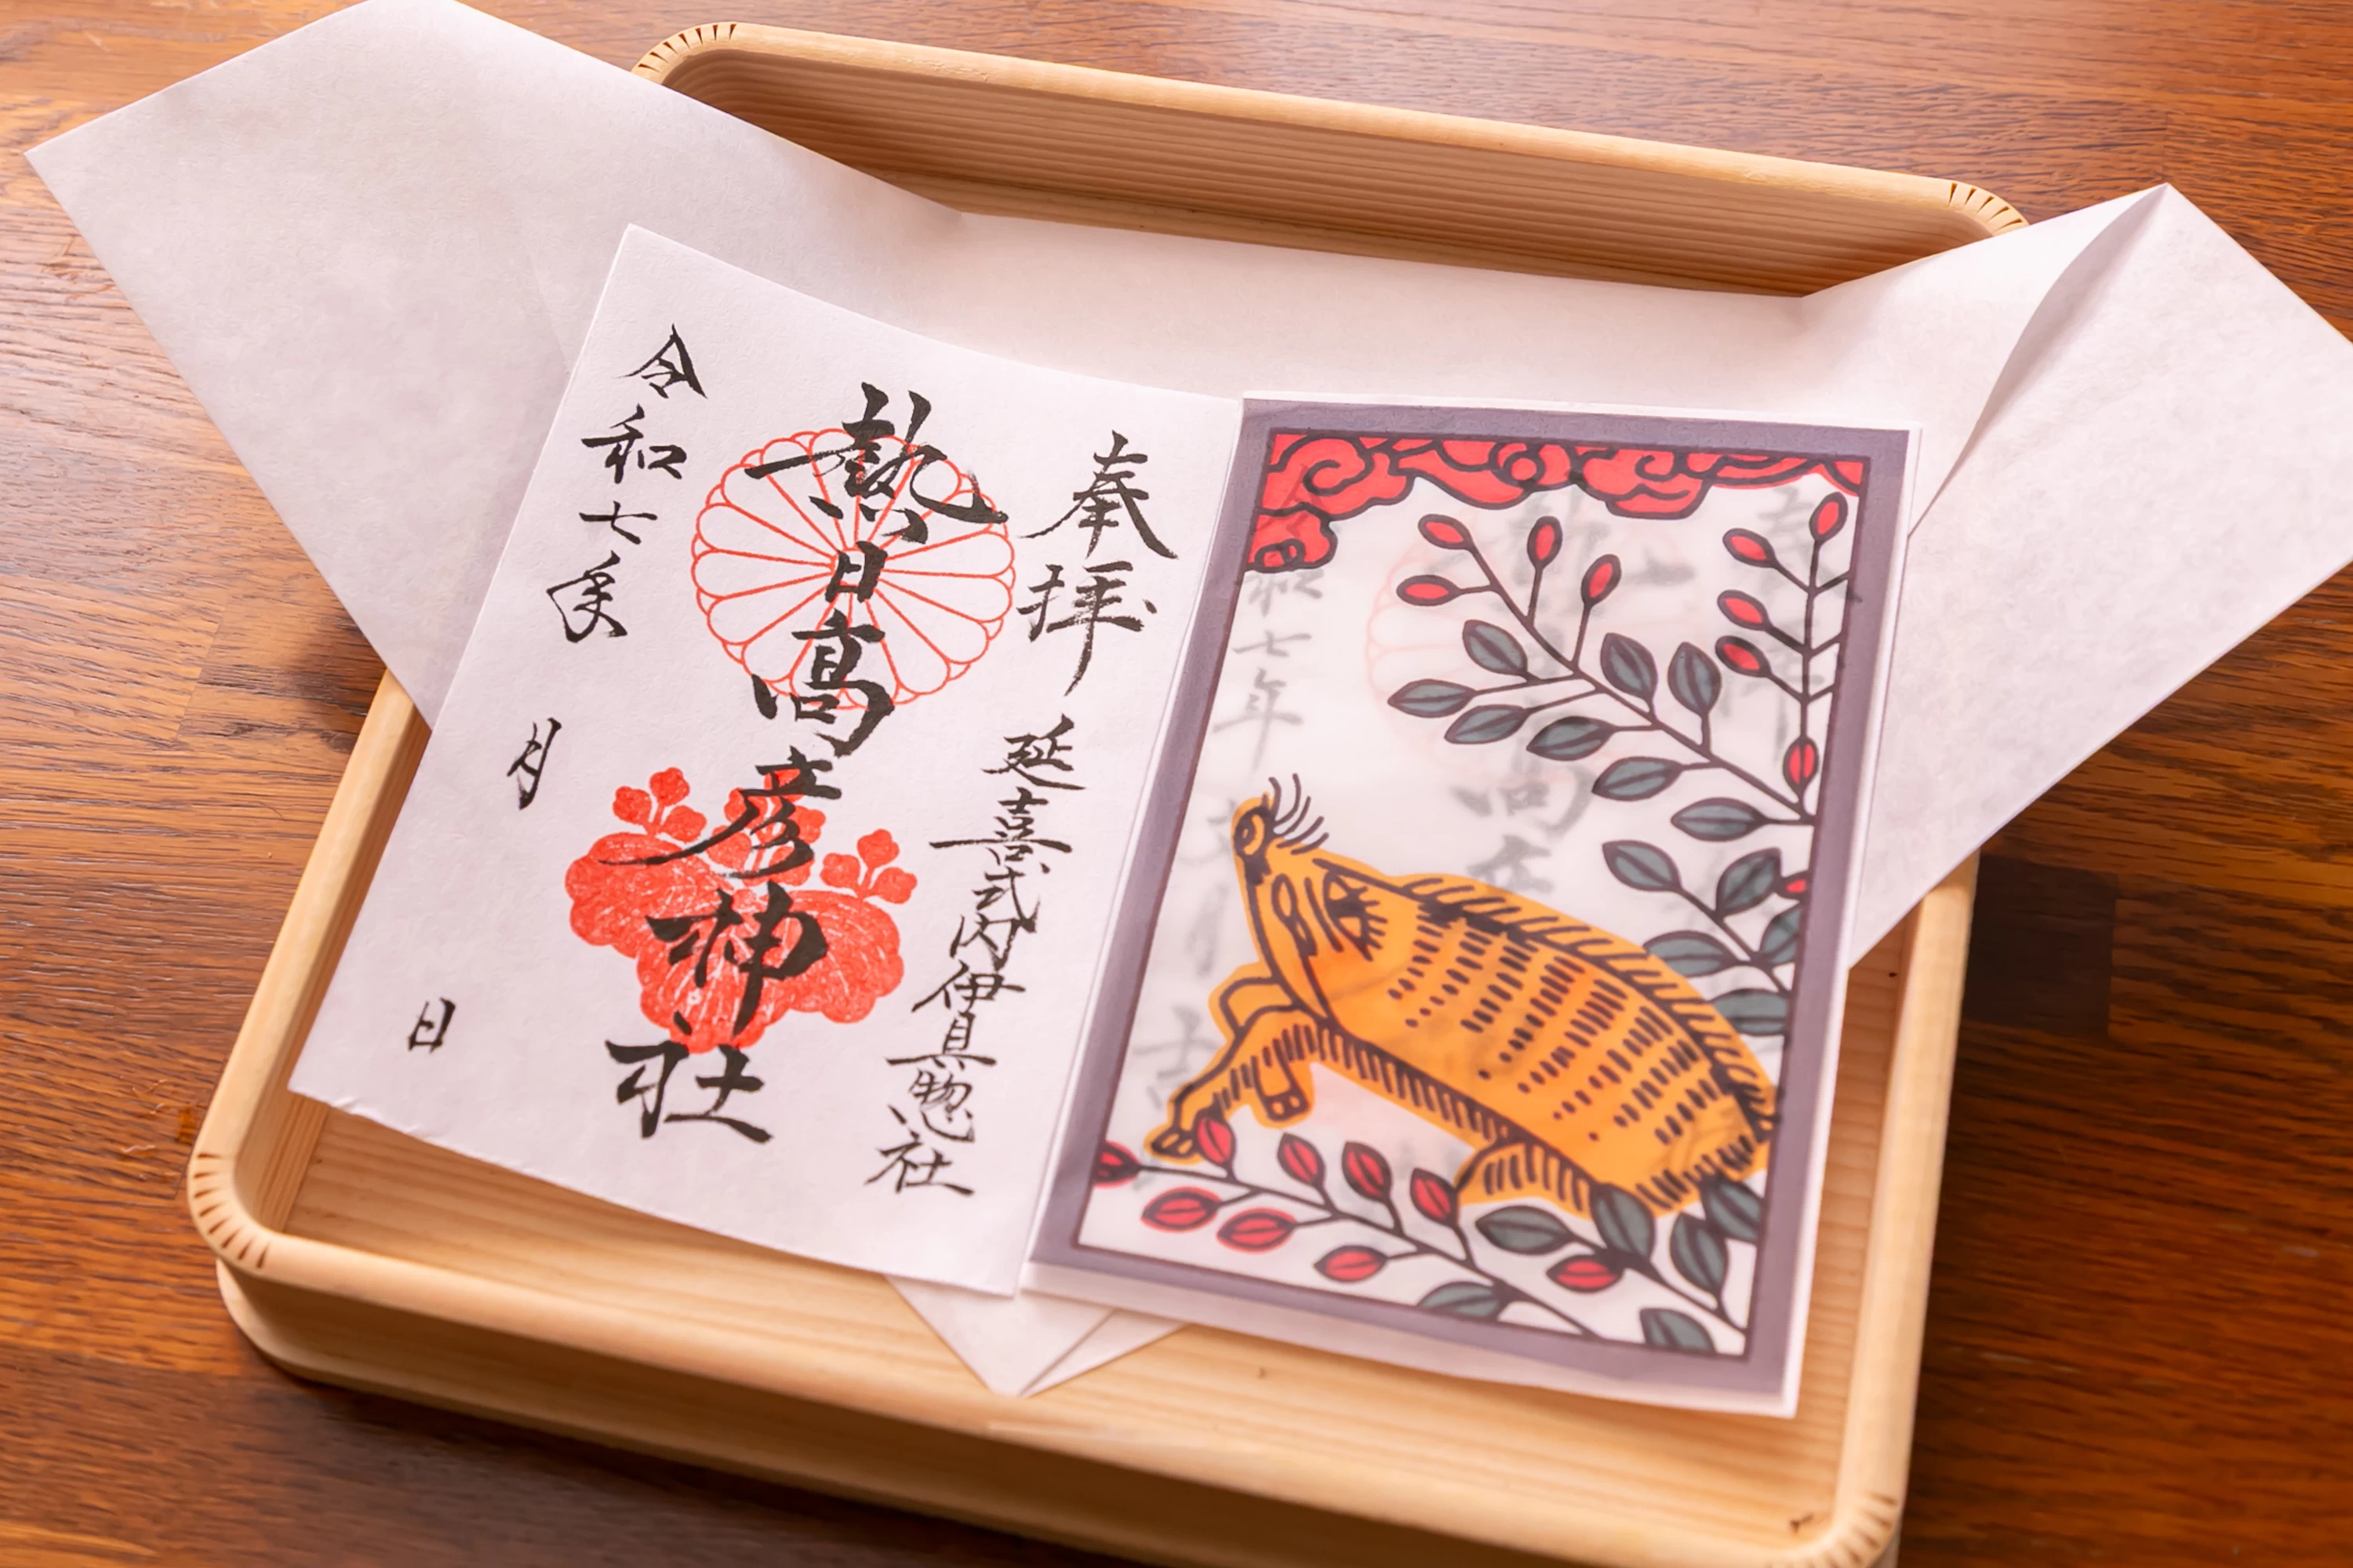 奉拝
延喜式内伊具惣社
熱日高彦神社
令和七年
月
日
七年